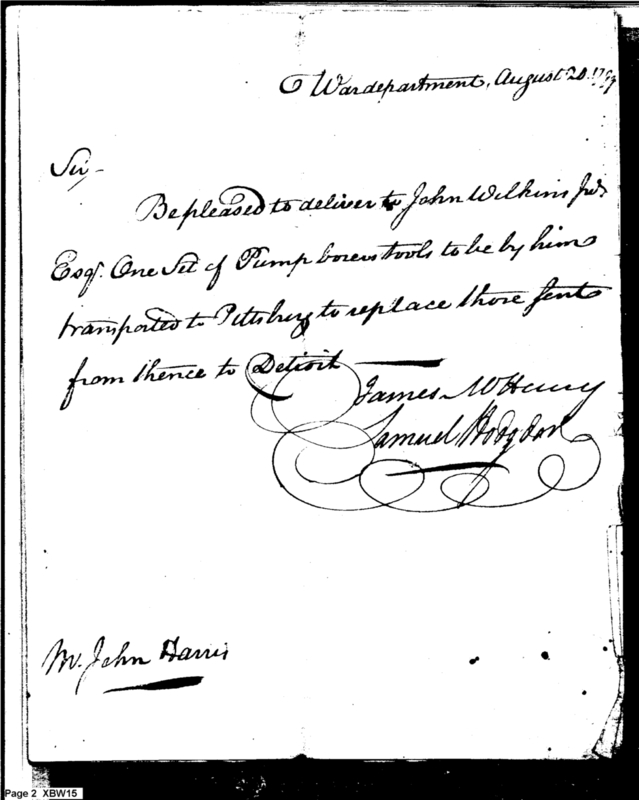 Wardepartment, August 20. 1799
Sir,
Be pleased to deliver to John Wilkins Junr
Esqr. One Set of Pump borers tools to be by him
transported to Pittsburg to replace those sent
from thence to Detroit
James McHenry
Samuel Hodgdon
Mr. John Harris
Page 2 XBW15